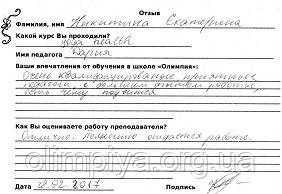 Отзыв
Фамилия, имя Никитина Екатерина
Какой курс Вы проходили? yoga health
Имя педагога Дария
Ваши впечатления от обучения в школе «Олимпия»:
Очень квалифицированные приятные
педагоги с большим опытом работы,
есть чему поучиться
Как Вы оцениваете работу преподавателя?
Отлично. Полностью отдаётся работе.
Дата 12.02.2017 Подпись
olimpiya.org.ua